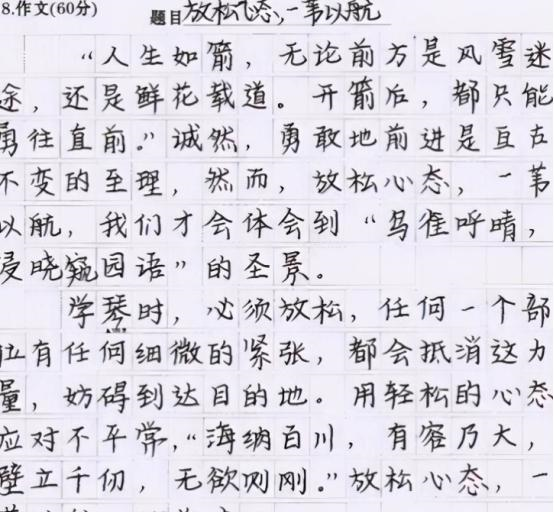 8.作文(60分) 题目 放松心态,一苇以航
“人生如箭，无论前方是风雪迷
途，还是鲜花载道。开箭后，都只能
勇往直前。”诚然，勇敢地前进是亘古
不变的至理，然而，放松心态，一苇
以航，我们才会体会到“鸟雀呼晴，
侵晓窥园语”的圣景。
学琴时，必须放松，任何一个部
位有任何细微的紧张，都会抵消这力
量，妨碍到达目的地。用轻松的心态
应对不平常，“海纳百川，有容乃大，
壁立千仞，无欲则刚。”放松心态，一